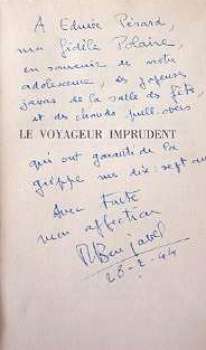 A Edmée Pérard,
ma fidèle Polaire,
en souvenir de notre
adolescence, des joyeuses
de la salle des fêtes,
et des chauds pull-overs
LE VOYAGEUR IMPRUDENT
qui ont garanti de la
grippe nos dix-sept ans
Avec toute
mon affection
R Barjavel
26-2-44